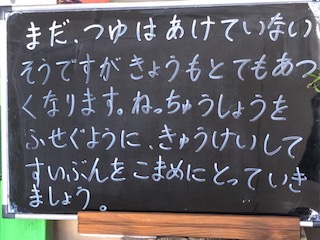 まだ、つゆはあけていない
そうですがきょうもとてもあつ
くなります。ねっちゅうしょうを
ふせぐように、きゅうけいして
すいぶんをこまめにとっていき
ましょう。